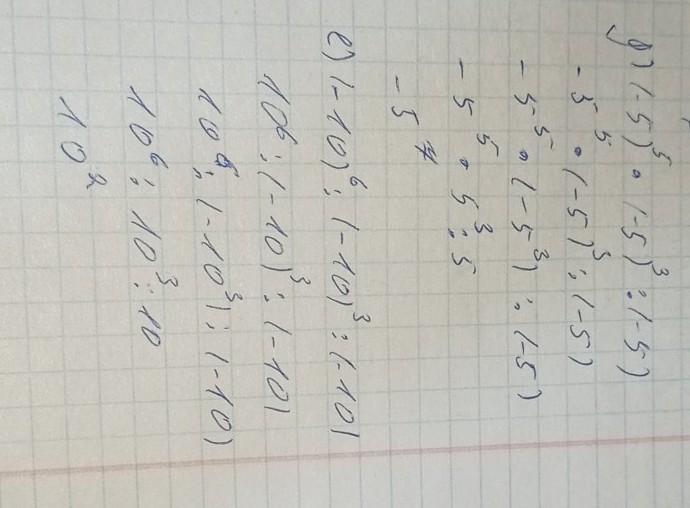 д) (-5)⁵ · (-5)³ : (-5)
-5⁵ · (-5)³ : (-5)
-5⁵ · (-5³) : (-5)
-5⁵ · 5³ : 5
-5⁷
е) (-10)⁶ : (-10)³ : (-10)
10⁶ : (-10)³ : (-10)
10⁶ : (-10³) : (-10)
10⁶ : 10³ : 10
10²